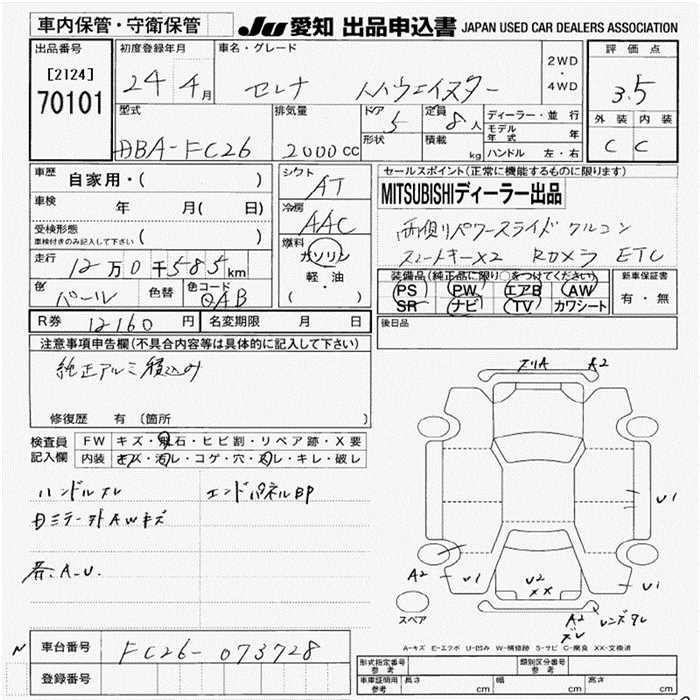 車内保管・守衛保管
JU 愛知 出品申込書 JAPAN USED CAR DEALERS ASSOCIATION
出品番号
[2124]
70101
初度登録年月
24 4月
車名・グレード
セレナ ハイウェイスター
2WD
・
4WD
評価点
3.5
外装 内装
C C
型式
DBA-FC26
排気量
2000cc
ドア
5
形状
定員
8人
積載
kg
ディーラー・並行
モデル年式 年
ハンドル 左・右
車歴 自家用・( )
車検 年 月( 日)
受検形態
車検付きのみ記入して下さい ( )
走行 12万0千585km
色 パール
色替
色コード QAB
シフト AT
冷房 AAC
燃料 ガソリン
軽・油
( )
セールスポイント(正常に機能するものに限ります)
MITSUBISHIディーラー出品
両側パワースライド クルコン
スマートキーX2 Rカメラ ETC
装備品(純正品に限り○をつけてください)
PS PW エアB AW
SR ナビ TV カワシート
新車保証書
有・無
R券 12160円
名変期限 月 日
後日品
注意事項申告欄(不具合内容等は具体的に記入して下さい)
純正アルミ積込み
修復歴 有 (箇所 )
検査員記入欄
FW キズ・飛石・ヒビ割・リペア跡・X要
内装 キズ・汚レ・コゲ・穴・スレ・キレ・破レ
ハンドルスレ エンドパネル凹
Dミラー外AWキズ
各A.U.
スリA A2
U1
A2 U1
U2
XX
U1
A2 レンズスレ
スレ
スペア
A-キズ E-エクボ U-凹み W-補修跡 S-サビ C-腐食 XX-交換済
N
車台番号 FC26-073728
登録番号
形式指定番号
参考
類別区分番号
参考
車庫証明用
参考
長さ cm
幅 cm
高さ cm